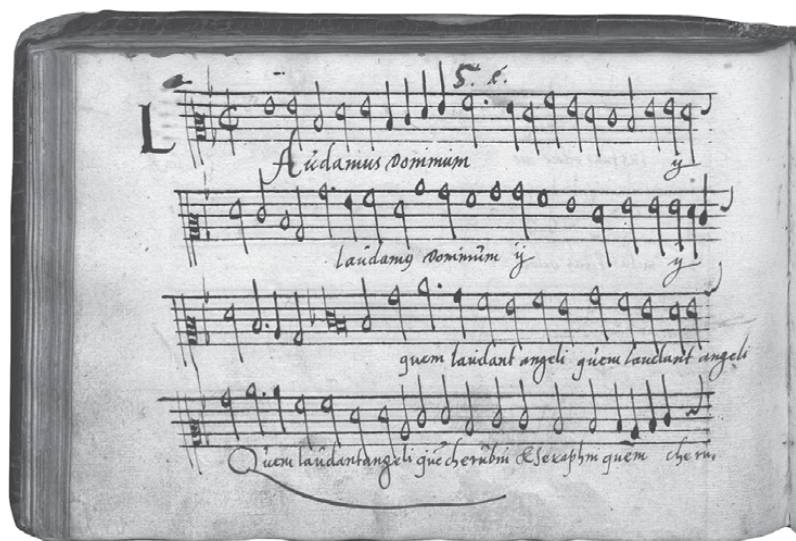 S. x.
L Audamus Dominum ij
laudamus Dominum ij ij
quem laudant angeli quem laudant angeli
Quem laudant angeli que cherubin & Seraphin quem cheru,